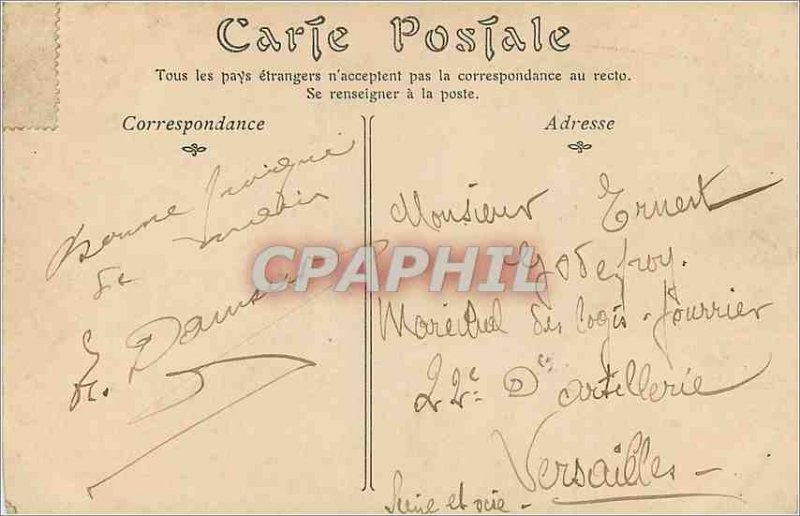 Carte Postale
Tous les pays étrangers n'acceptent pas la correspondance au recto.
Se renseigner à la poste.
Correspondance
Adresse
Bonne
de
Monsieur Ernest
Godefroy.
Maréchal des logis - fourrier
22e D'artillerie
Versailles -
Seine et oise -
CPAPHIL